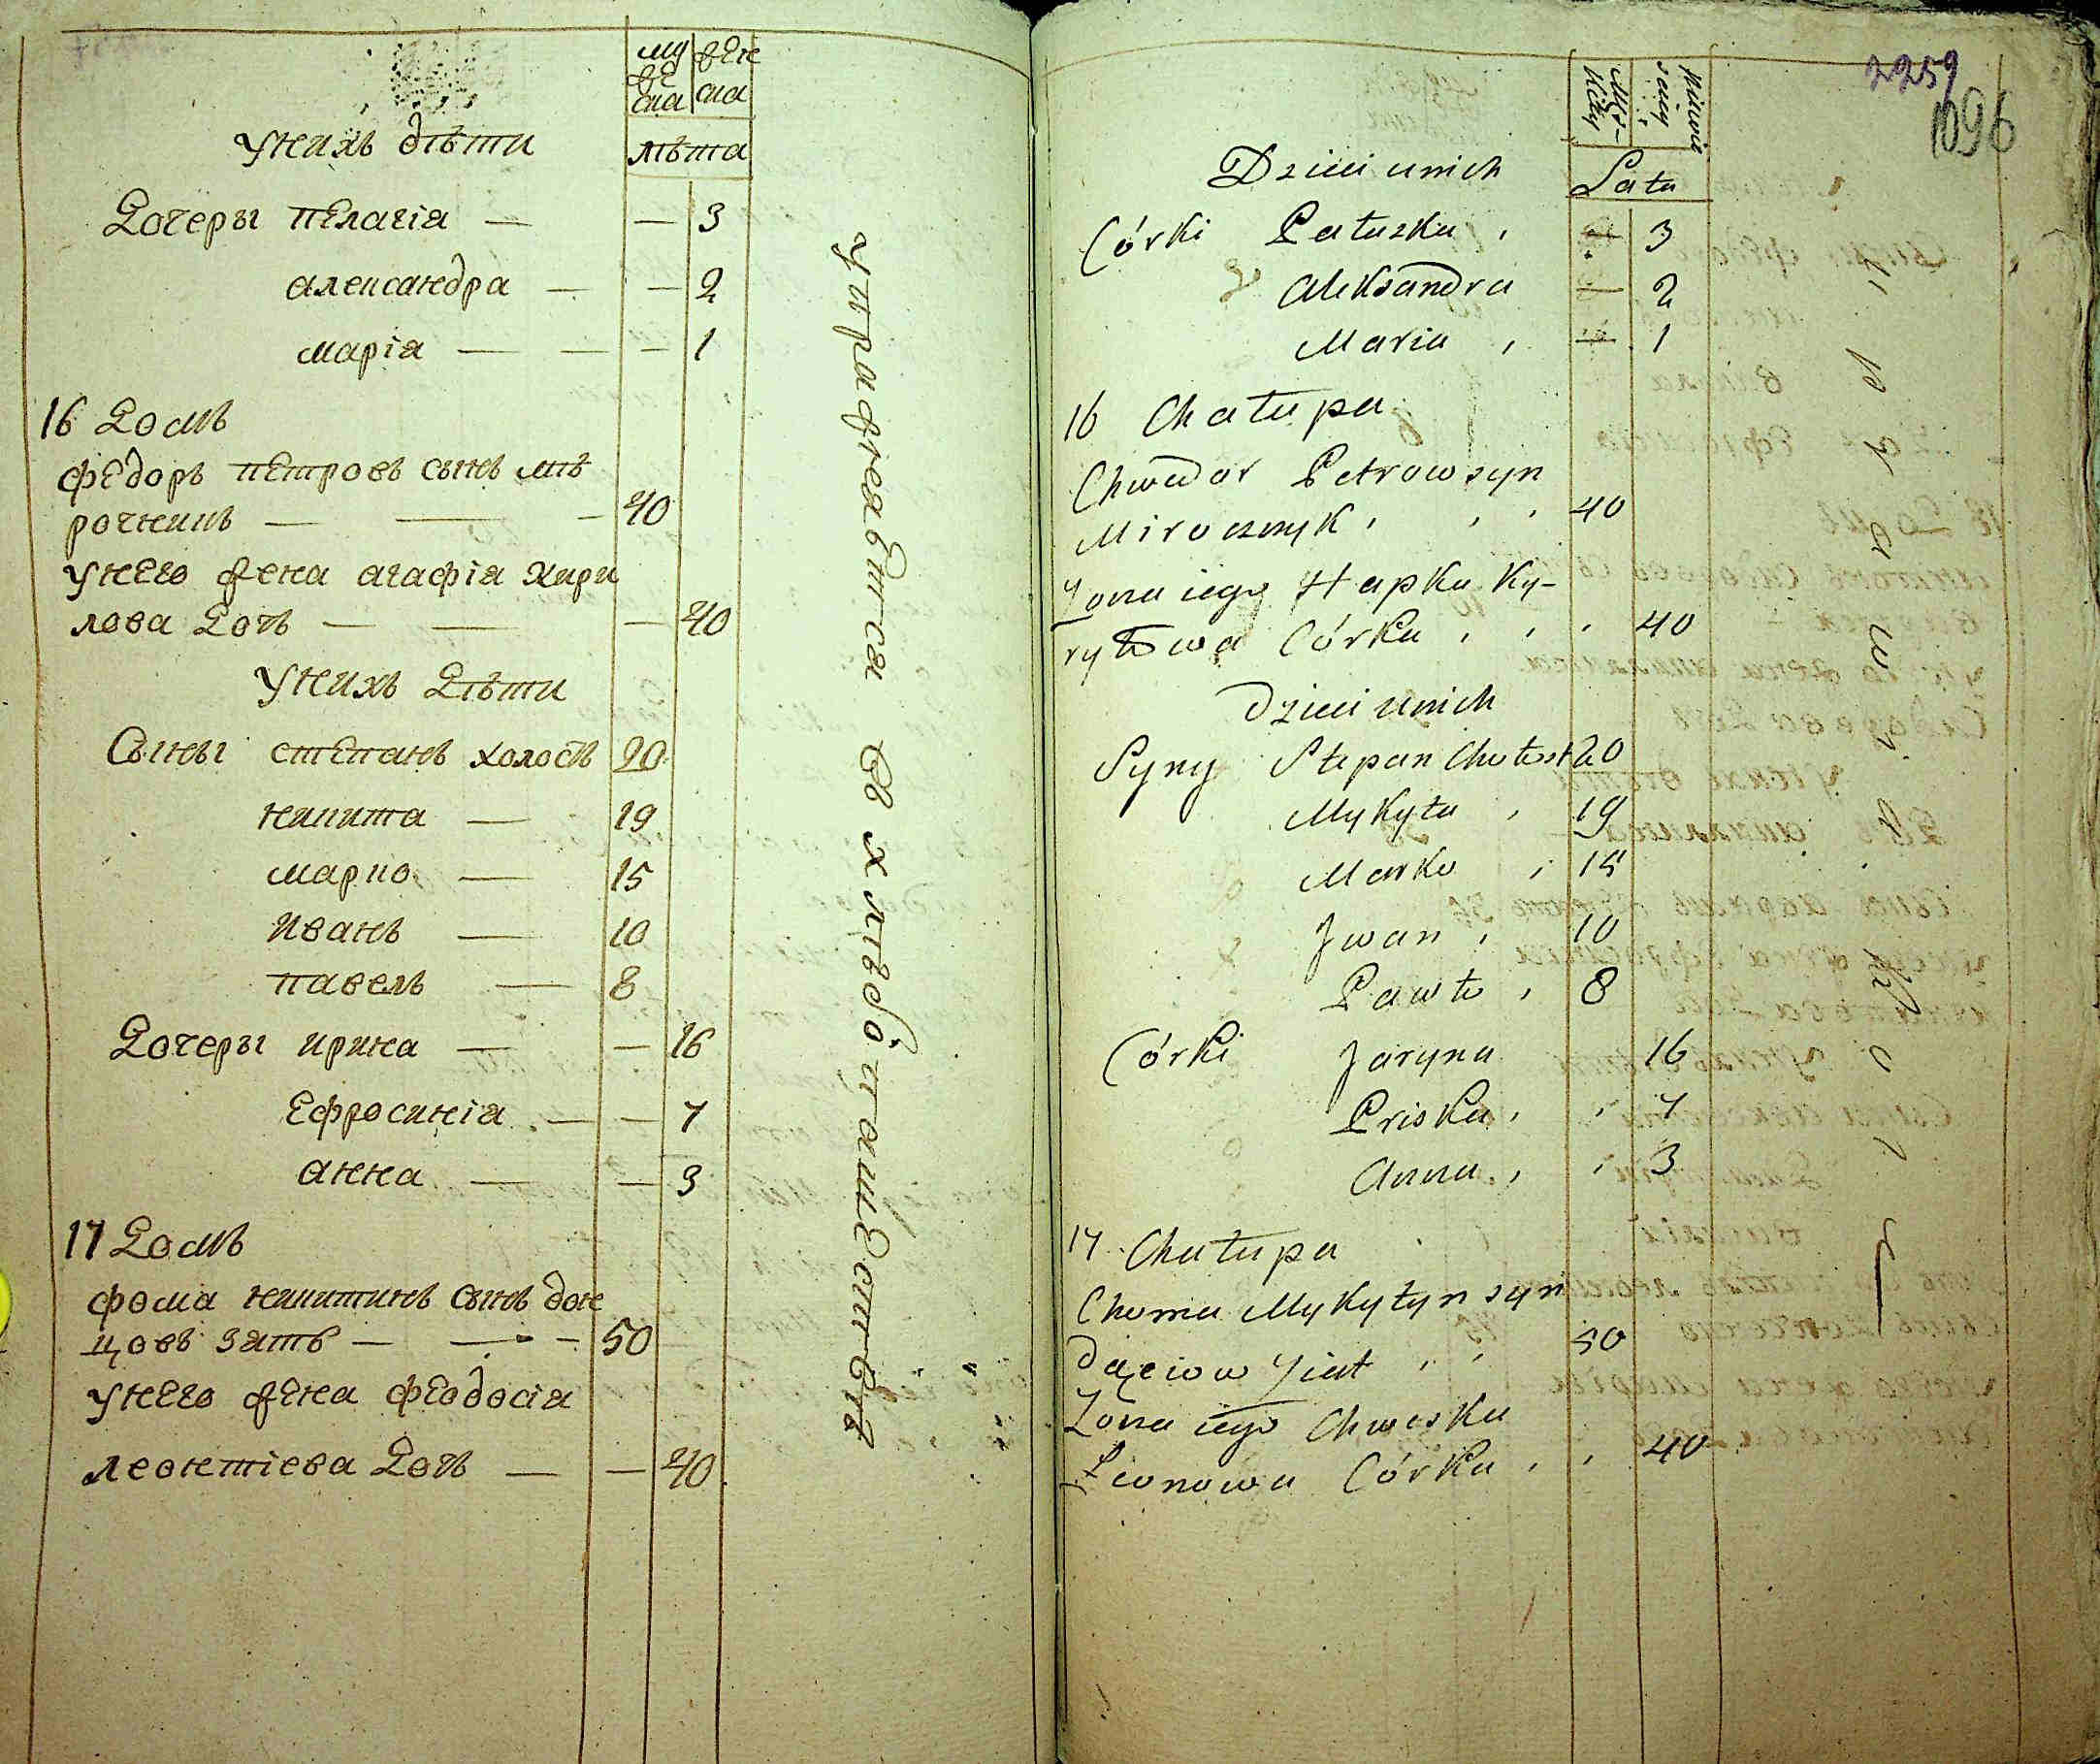 му
же
ска
жен
ска
лѣта
У нихъ дѣти
Дочеры Пелагіа — — 3
Александра — — 2
Маріа — — — 1
16 Домъ
Федоръ Петровъ сынъ Мѣ
рочникъ — — — 40
У него жена Агафіа Кири
лова дочь — — — 40
У нихъ дѣти
Сыны Степанъ холостъ 20
Никита — 19
Марко — 15
Иванъ — 10
Павелъ — 8
Дочеры Ирина — — 16
Ефросиніа — — 7
Анна — — 3
17 Домъ
Фома Никитинъ сынъ дон
цовъ зять — — — 50
У него жена Феодосіа
Леонтіева дочь — — 40
упражняется въ хлѣбопашествѣ
2259
1096
Męz-
kiey
Niewie
sciey
Lata
Dzieci u nich
Córki Pałazka 3
Alexandra 2
Maria 1
16 Chałupa
Chwedor Petrow syn
Mirocznyk 40
Zona iego Hapka Ky-
ryłowa Córka 40
Dzieci u nich
Syny Stepan Chołost 20
Mykyta 19
Marko 15
Jwan 10
Pawło 8
Córki Jaryna 16
Priska 7
Anna 3
17 Chałupa
Choma Mykytyn syn
Ziat 50
Zona iego Chweska
Leonowa Córka 40